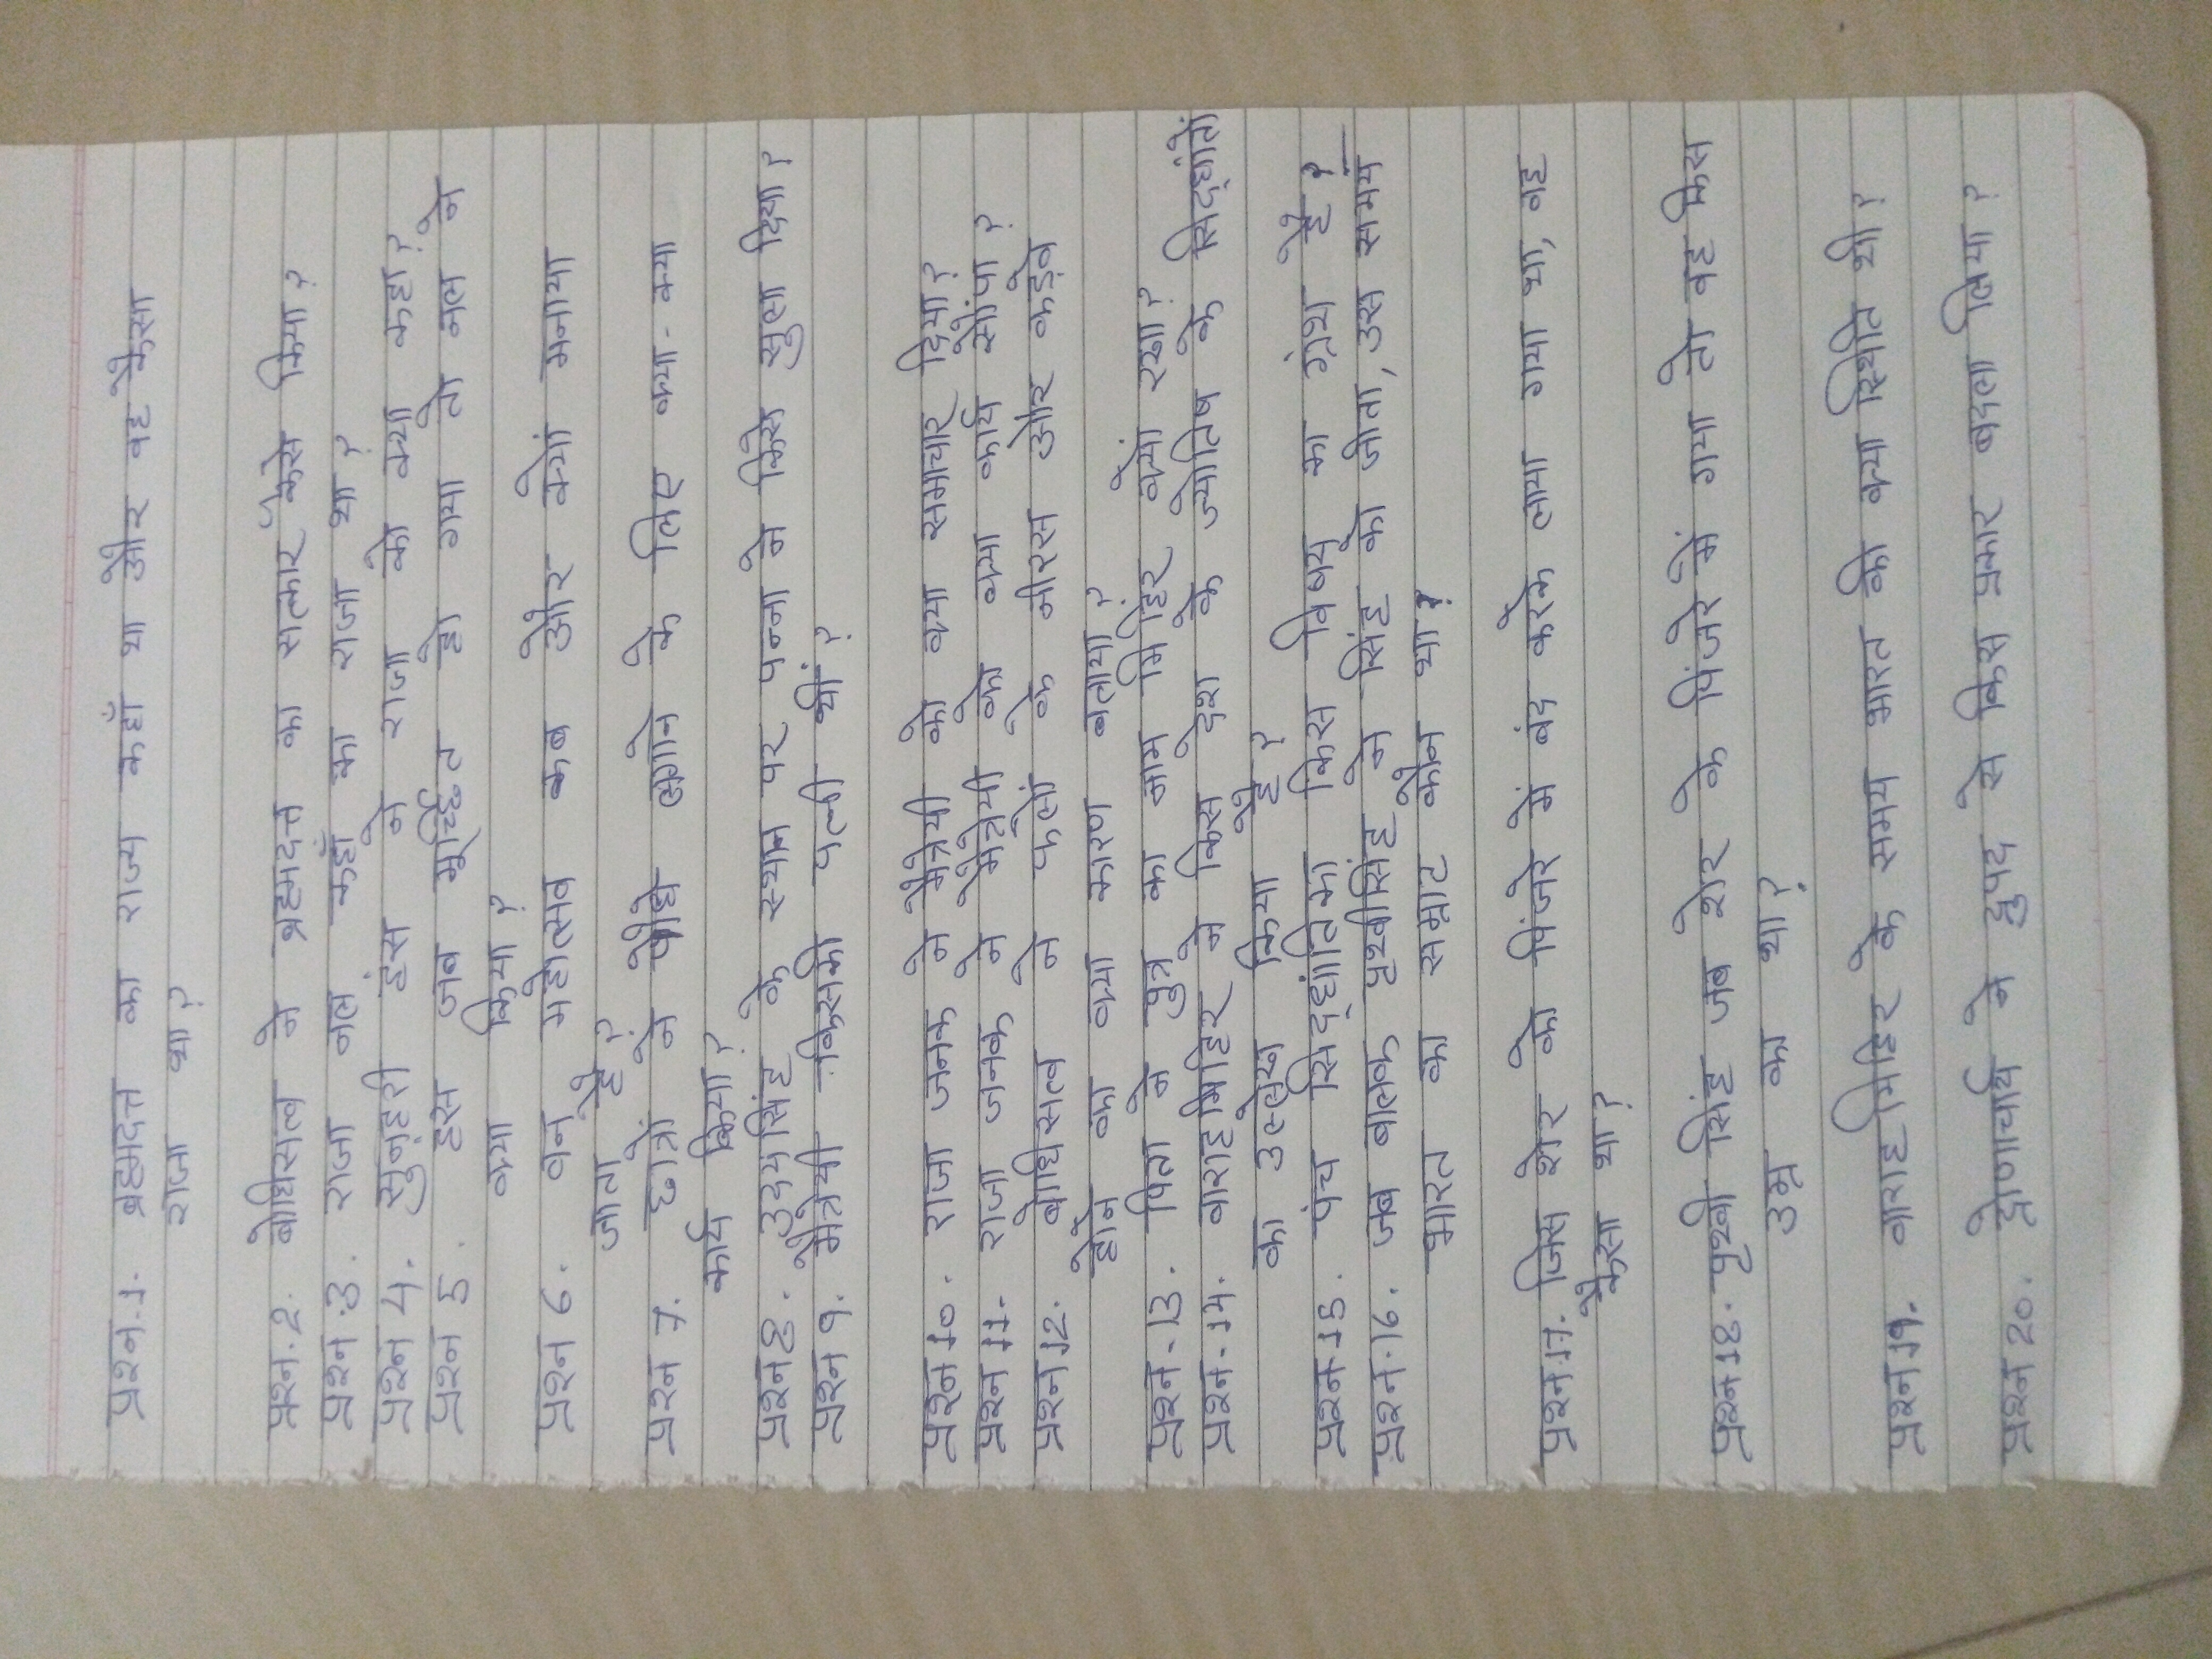 प्रश्न.1. ब्रह्मदत्त का राज्य कहाँ था और वह कैसा
राजा था?
प्रश्न.2. बोधिसत्व ने ब्रह्मदत्त का सत्कार कैसे किया?
प्रश्न.3. राजा नल कहाँ का राजा था?
प्रश्न 4. सुनहरी हंस ने राजा को क्या कहा?
प्रश्न 5. हंस जब मूर्च्छित हो गया तो नल ने
क्या किया?
प्रश्न 6. वन महोत्सव कब और क्यों मनाया
जाता है?
प्रश्न 7. छात्रों ने पौधे लगाने के लिए क्या-क्या
कार्य किया?
प्रश्न 8. उदयसिंह के स्थान पर पन्ना ने किसे सुला दिया?
प्रश्न 9. मैत्रेयी किसकी पत्नी थीं?
प्रश्न 10. राजा जनक ने मैत्रेयी को क्या समाचार दिया?
प्रश्न 11. राजा जनक ने मैत्रेयी को क्या कार्य सौंपा?
प्रश्न 12. बोधिसत्व ने फलों के नीरस और कड़वे
होने का क्या कारण बताया?
प्रश्न-13. पिता ने पुत्र का नाम मिहिर क्यों रखा?
प्रश्न-14. वाराहमिहिर ने किस देश के ज्योतिष के सिद्धांतों
का उल्लेख किया है?
प्रश्न 15. पंच सिद्धांतिका किस विषय का ग्रंथ है?
प्रश्न.16. जब बालक पृथ्वीसिंह ने सिंह को जीता, उस समय
भारत का सम्राट कौन था?
प्रश्न 17. जिस शेर को पिंजरे में बंद करके लाया गया था, वह
कैसा था?
प्रश्न 18. पृथ्वी सिंह जब शेर के पिंजरे में गया तो वह किस
उम्र का था?
प्रश्न 19. वाराहमिहिर के समय भारत की क्या स्थिति थी?
प्रश्न 20. द्रोणाचार्य ने द्रुपद से किस प्रकार बदला लिया?